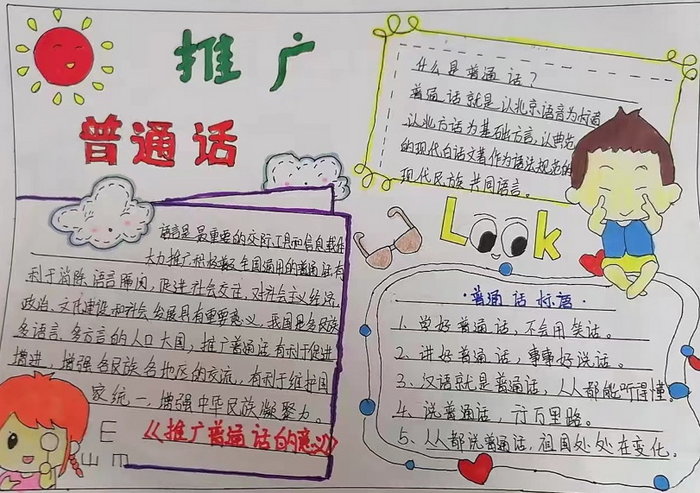 推广
普通话
什么是普通话?
普通话就是以北京语音为标准
以北方话为基础方言,以典范
的现代白话文著作为语法规范的
现代民族共同语言。
Look
语言是最重要的交际工具和信息载体
大力推广和积极普及全国通用的普通话有
利于消除语言隔阂,促进社会交往,对社会主义经济
政治、文化建设和社会发展具有重要意义,我国是多民族
多语言、多方言的人口大国,推广普通话有利于促进
增进,增强各民族各地区的交流,有利于维护国
家统一,增强中华民族凝聚力。
《推广普通话的意义》
E
山 E
·普通话标语·
1、学好普通话,不会用笑话。
2、讲好普通话,事事好说话。
3、汉语就是普通话,人人都能听得懂。
4、说普通话,行万里路。
5、人人都说普通话,祖国处处在变化。